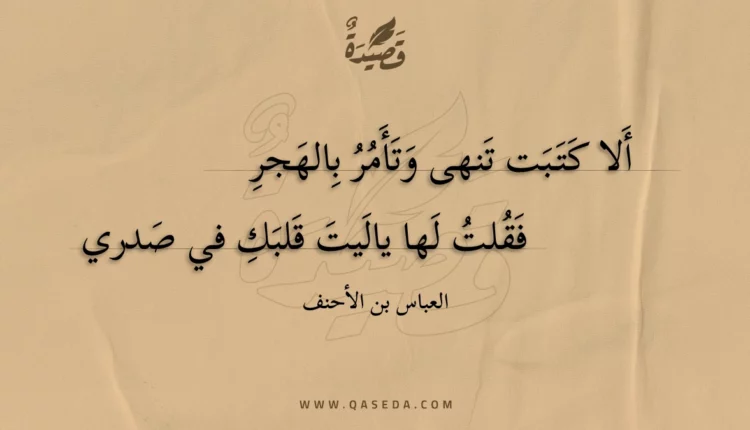 قَصِيْدَةٌ
أَلا كَتَبَت تَنهى وَتَأَمُرُ بِالهَجرِ
فَقُلتُ لَها يالَيتَ قَلبَكِ في صَدري
العباس بن الأحنف
WWW.QASEDA.COM